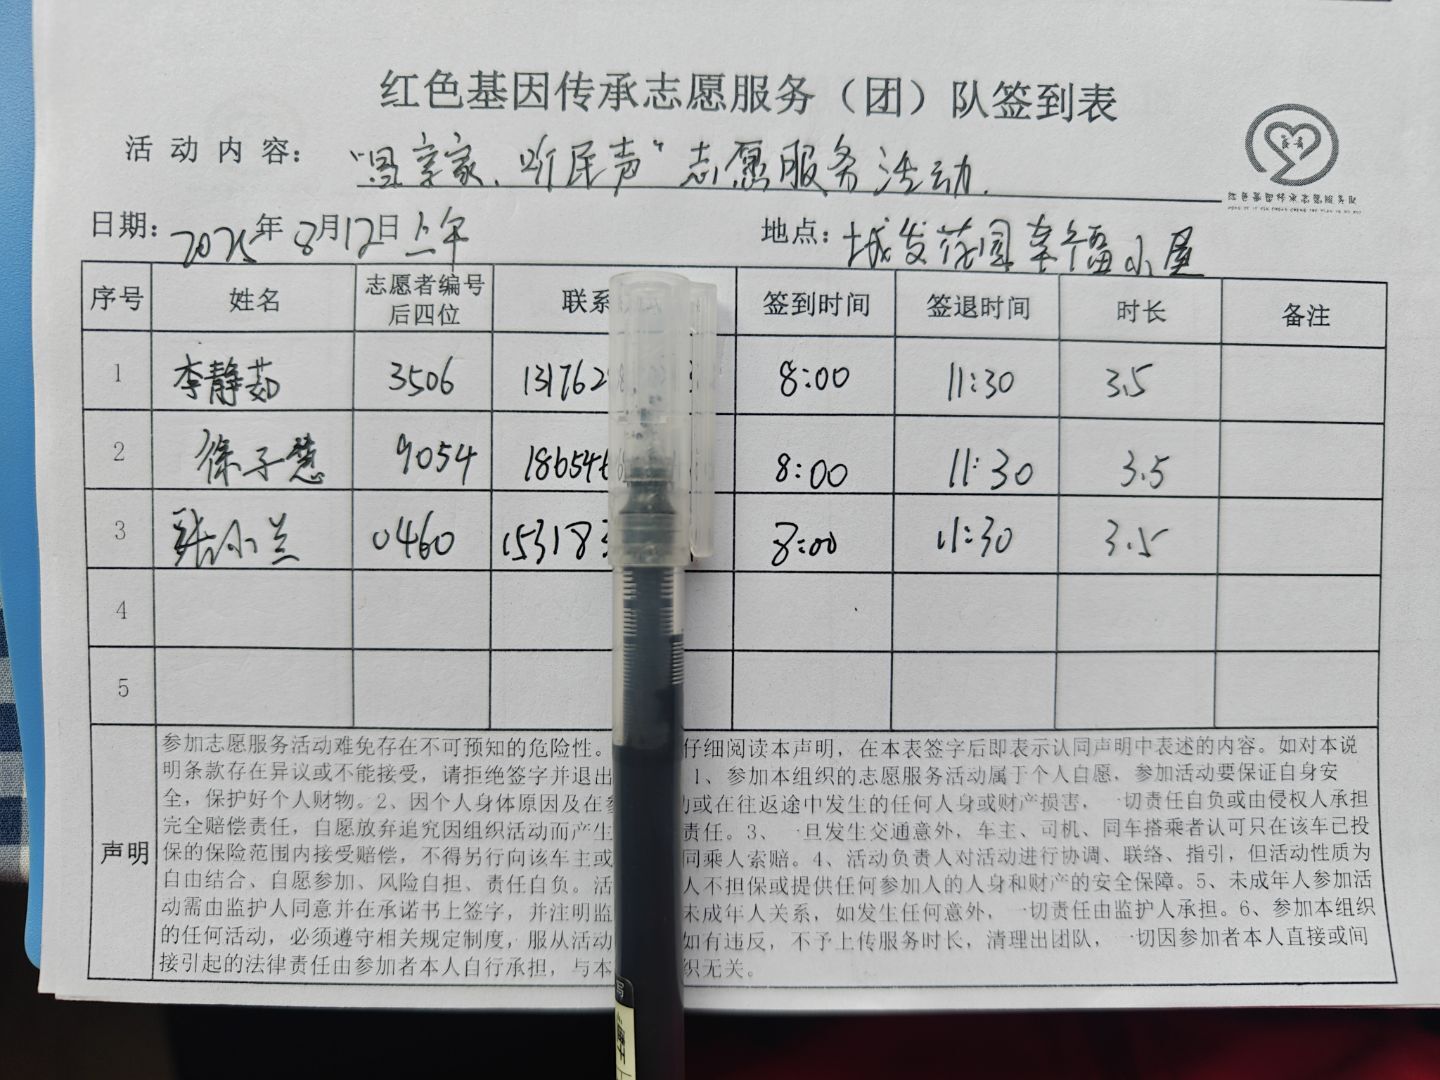 红色基因传承志愿服务（团）队签到表
活动内容： 享家、听民声”志愿服务活动.
日期：2025年8月12日上午 地点：城发花园幸福小屋
序号 姓名 志愿者编号后四位 联系 签到时间 签退时间 时长 备注
1 李静茹 3506 131762 8:00 11:30 3.5
2 徐子慧 9054 186546 8:00 11:30 3.5
3 张小兰 0460 153183 8:00 11:30 3.5
4
5
声明
参加志愿服务活动难免存在不可预知的危险性。 仔细阅读本声明，在本表签字后即表示认同声明中表述的内容。如对本说
明条款存在异议或不能接受，请拒绝签字并退出 1、参加本组织的志愿服务活动属于个人自愿，参加活动要保证自身安
全，保护好个人财物。2、因个人身体原因及在参 动或在往返途中发生的任何人身或财产损害，一切责任自负或由侵权人承担
完全赔偿责任，自愿放弃追究因组织活动而产生 责任。3、一旦发生交通意外，车主、司机、同车搭乘者认可只在该车已投
保的保险范围内接受赔偿，不得另行向该车主或 同乘人索赔。4、活动负责人对活动进行协调、联络、指引，但活动性质为
自由结合、自愿参加、风险自担、责任自负。活 人不担保或提供任何参加人的人身和财产的安全保障。5、未成年人参加活
动需由监护人同意并在承诺书上签字，并注明监 未成年人关系，如发生任何意外，一切责任由监护人承担。6、参加本组织
的任何活动，必须遵守相关规定制度，服从活动 如有违反，不予上传服务时长，清理出团队，一切因参加者本人直接或间
接引起的法律责任由参加者本人自行承担，与本 织无关。